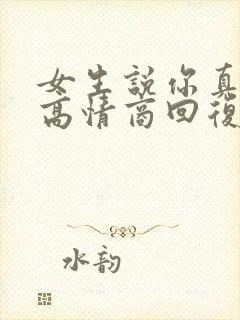 女生說你真
高情商回復
水韵